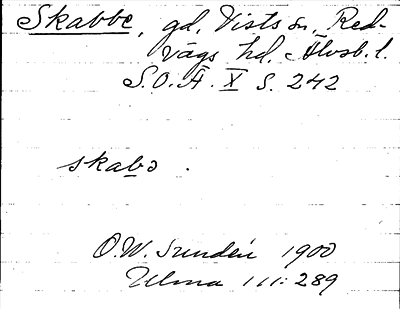 Skabbe, gd, Vists sn, Red-
vägs hd. Älvsb. l.
S.O.Ä. X s. 242
skabɔ .
O.W. Sundén 1900
Ulma 111: 289